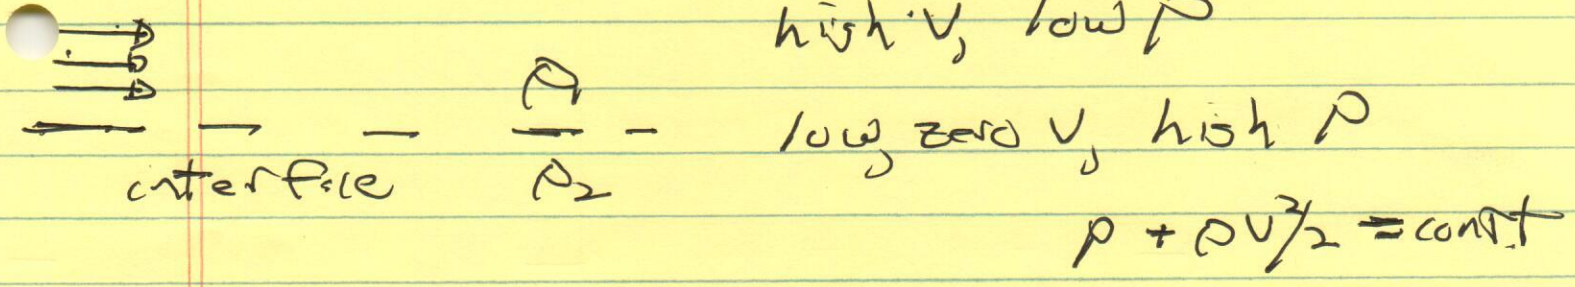 high V, low p
ρ1
low, zero V, high p
interface ρ2
p + ρV²/2 = const